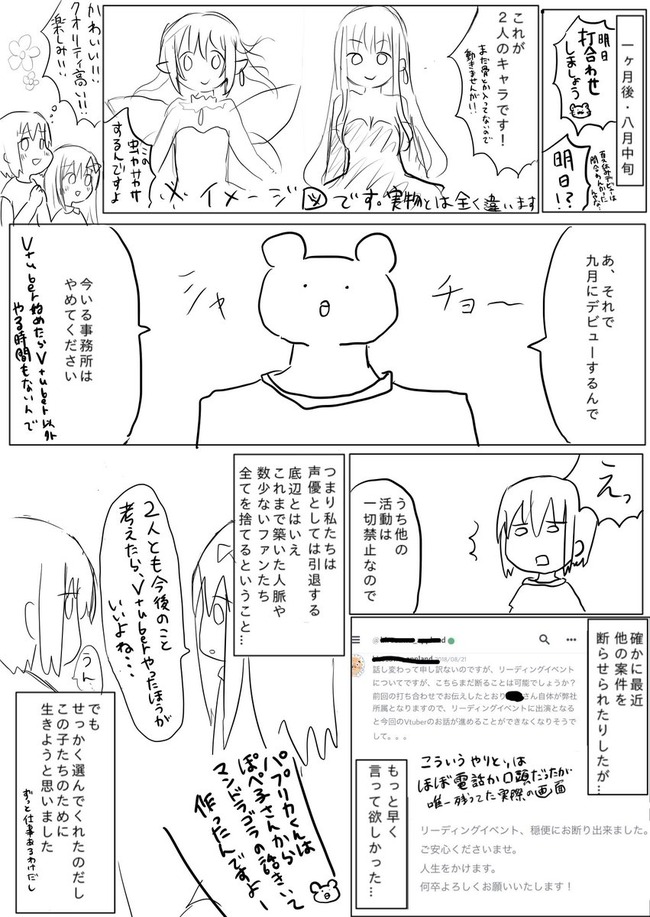 一ヶ月後・八月中旬
明日
打合わせ
しましょう
明日!?
これが
2人のキャラです!
まだ骨とか入ってないので
動きませんが!!
この
虫がカサカサ
するんですよ
※イメージ図です。実物とは全く違います
かわいい!!
クオリティ高い!!
楽しみ!!
あ、それで
九月にデビューするんで
チョーー
シャ
今いる事務所は
やめてください
Vtuber始めたらVtuber以外
やる時間もないんで
えっ
うち他の
活動は
一切禁止なので
つまり私たちは
声優としては引退する
底辺とはいえ
これまで築いた人脈や
数少ないファンたち
全てを捨てるということ…
2人とも今後のこと
考えたらVtuberやったほうが
いいよね…
うん…
確かに最近
他の案件を
断らせられたりしたが…
2018/08/21
話し変わって申し訳ないのですが、リーディングイベント
についてですが、こちらまだ断ることは可能でしょうか?
前回の打ち合わせでお伝えしたとおり さん自体が弊社
所属となりますので、リーディングイベントに出演となる
と今回のVtuberのお話が進めることができなくなりそうで
して。。。
こういうやりとりは
ほぼ電話か口頭だったが
唯一残ってた実際の画面
リーディングイベント、穏便にお断り出来ました。
ご安心くださいませ。
人生をかけます。
何卒よろしくお願いいたします!
もっと早く
言って欲しかった…
パプリカくんは
ぽぺ子さんから
マンドラゴラの話きいて
作ったんですよー
でも
せっかく選んでくれたのだし
この子たちのために
生きようと思いました
ずっと仕事あるわけだし